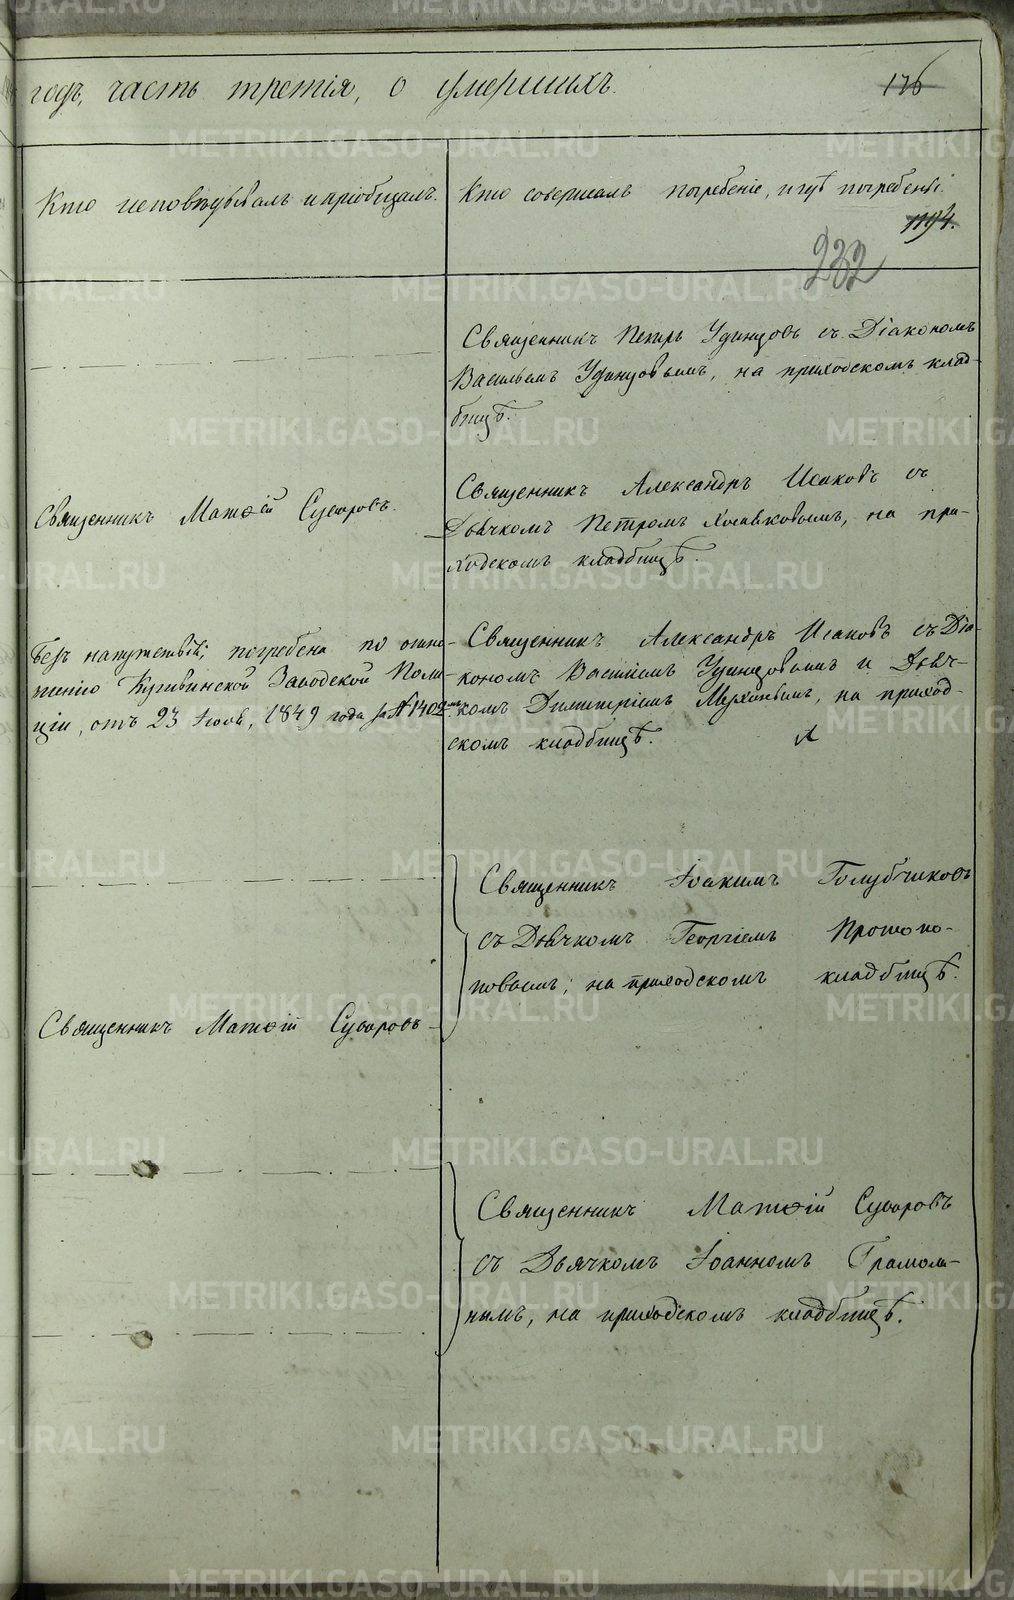 годъ, часть третія, о умершихъ.
126
Кто исповѣдывалъ и пріобщалъ.
Кто совершалъ погребеніе, и гдѣ погребены.
1194.
232
Священникъ Петръ Удинцовъ съ Діакономъ
Васильемъ Удинцовымъ, на приходскомъ клад-
бищѣ.
Священникъ Матѳій Суворовъ.
Священникъ Александръ Исаковъ съ
Дьячкомъ Петромъ на при-
ходскомъ кладбищѣ.
Безъ напутствія; погребена по отно-
шенію Кушвинской Заводской Поли-
ціи, отъ 23 Іюля, 1849 года за № 1402
Священникъ Александръ Исаковъ съ Діа-
кономъ Василіемъ Удинцовымъ и Дьяч-
комъ Димитріемъ на приход-
скомъ кладбищѣ.
Священникъ Іоакимъ Голубчиковъ
съ Дьячкомъ Георгіемъ Протопо-
повымъ; на приходскомъ кладбищѣ.
Священникъ Матѳій Суворовъ
Священникъ Матѳій Суворовъ
съ Дьячкомъ Іоанномъ Грамоли-
нымъ, на приходскомъ кладбищѣ.
METRIKI.GASO-URAL.RU